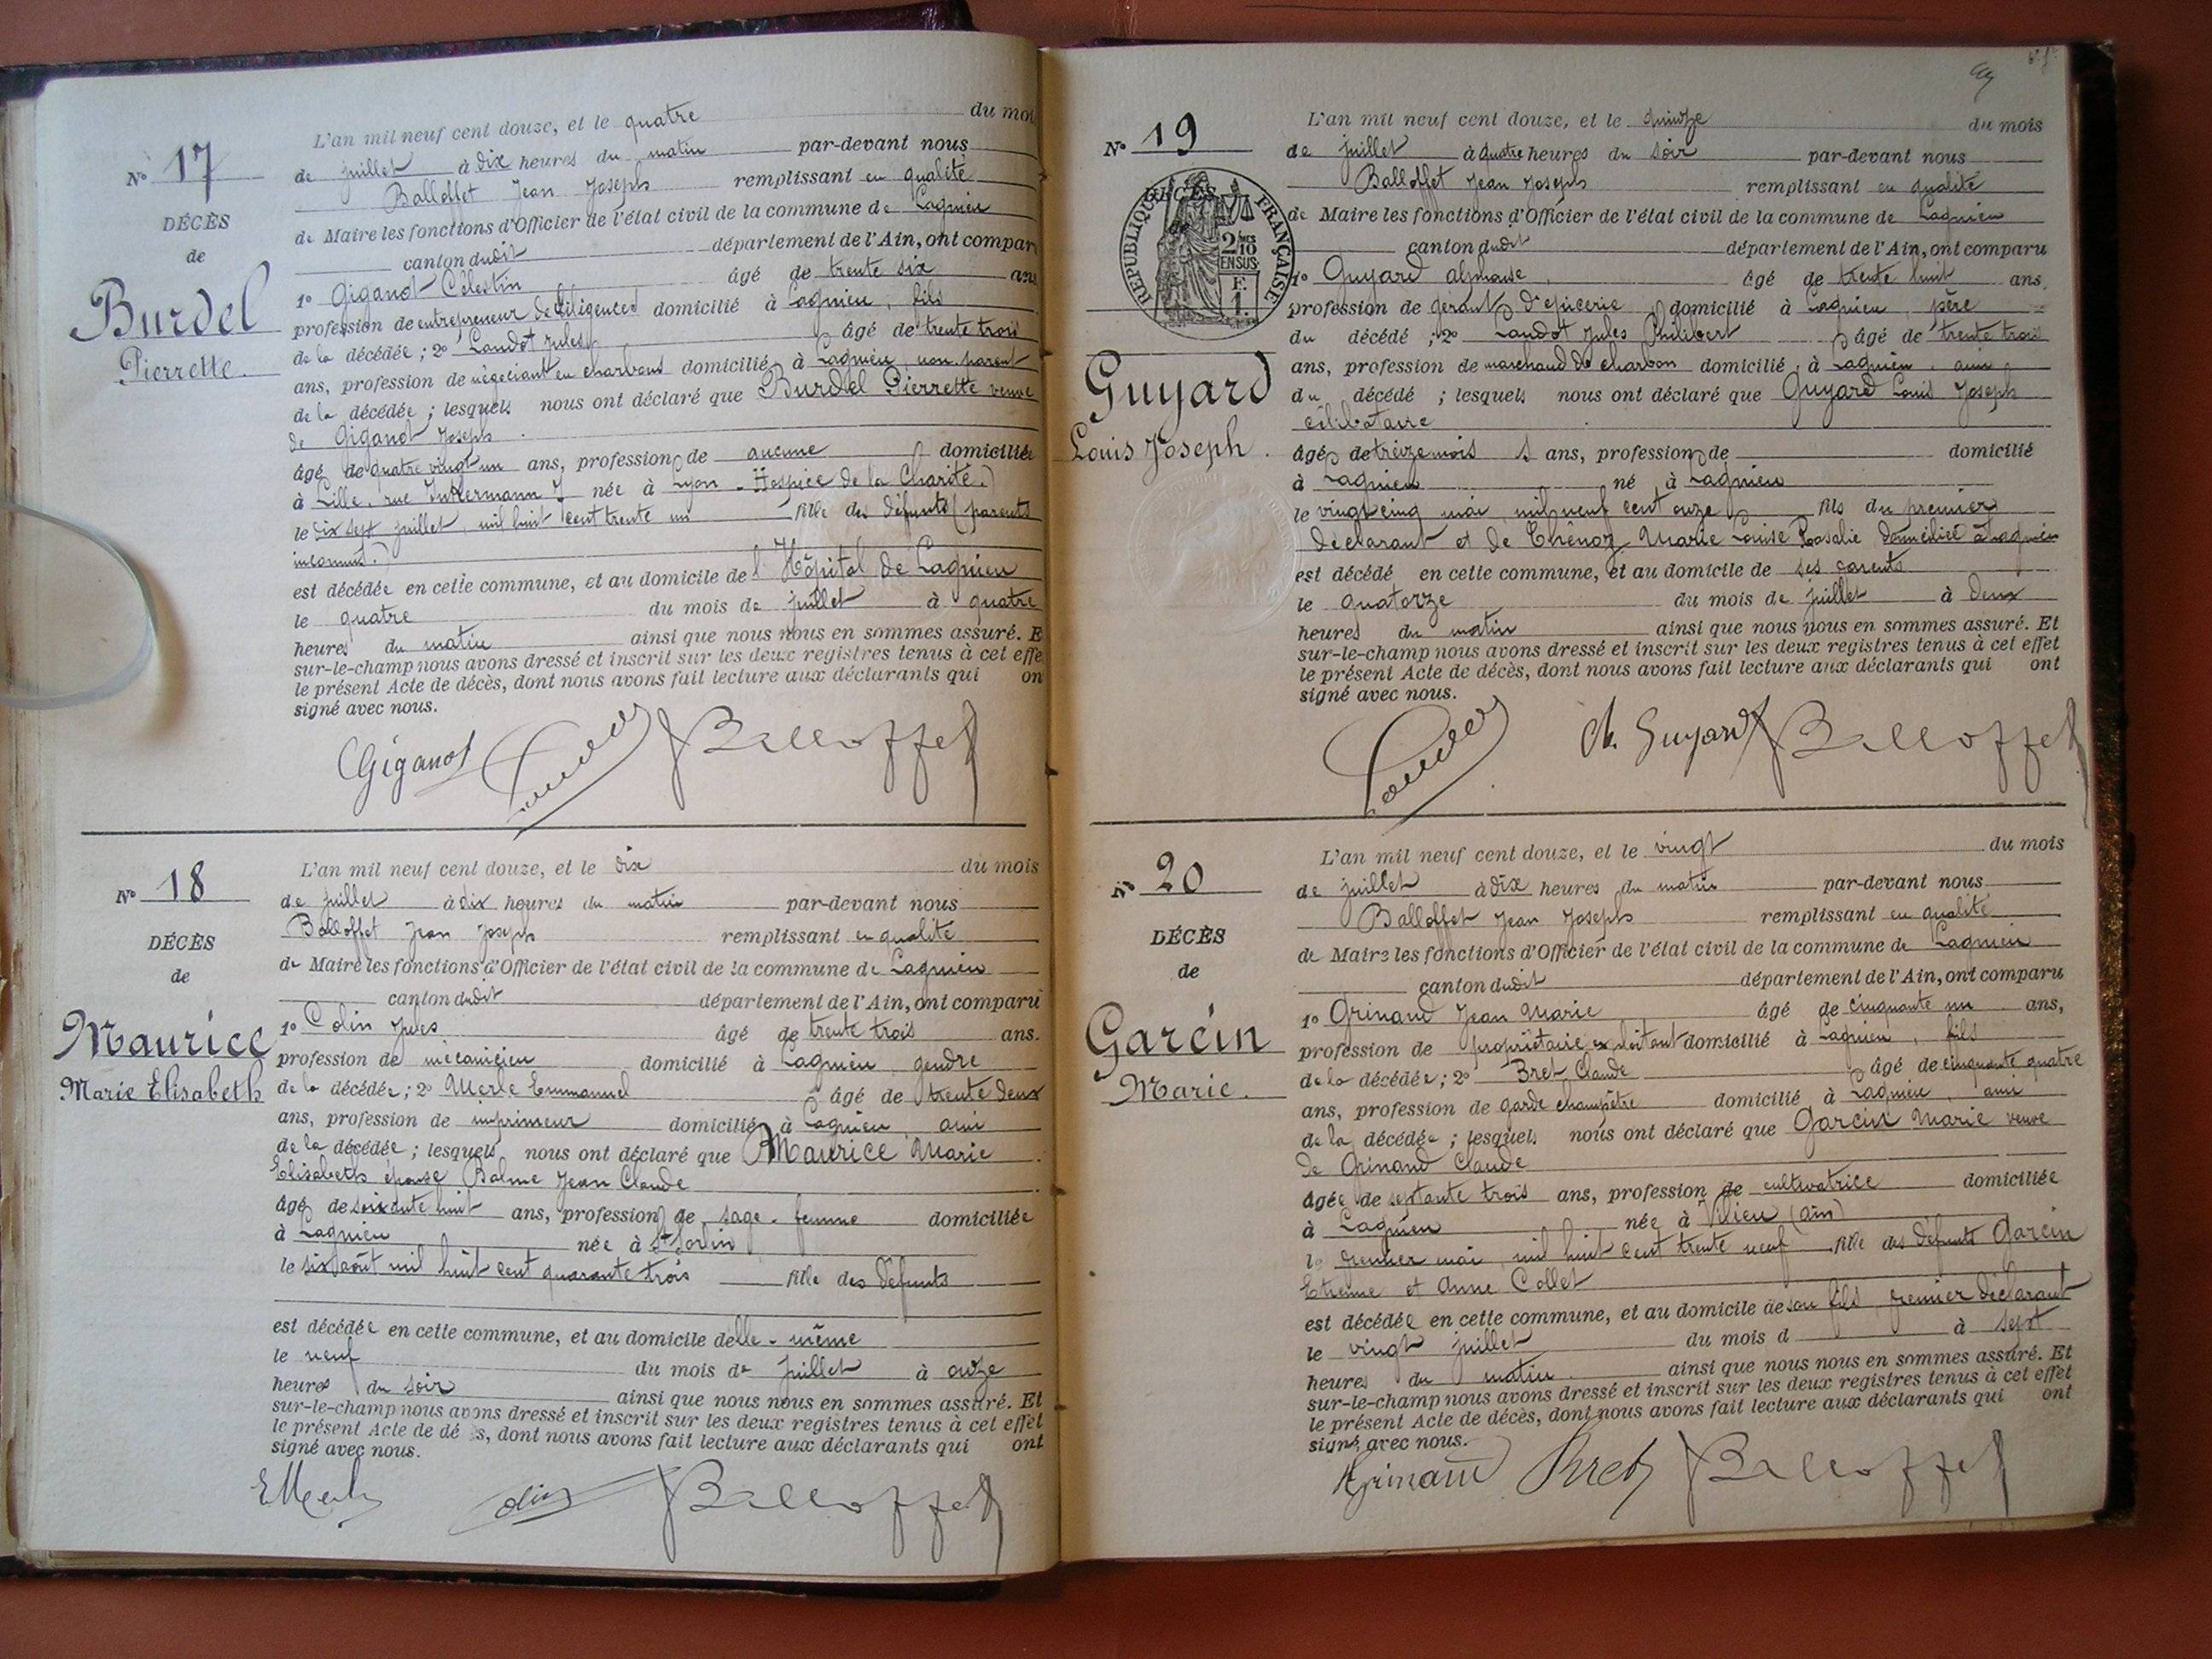 No 17
DÉCÈS
de
Burdel
Pierrette.
L'an mil neuf cent douze, et le quatre du moi
de juillet à dix heures du matin par-devant nous
Balloffet Jean Joseph remplissant en qualité
de Maire les fonctions d'Officier de l'état civil de la commune de Lagnieu
canton dudit département de l'Ain, ont compar
1o Giganot Célestin âgé de trente six ans
profession de entrepreneur de diligences domicilié à Lagnieu, fils
de la décédée ; 2o Landot Jules âgé de trente trois
ans, profession de négociant en charbons domicilié à Lagnieu non parent
de la décédée ; lesquels nous ont déclaré que Burdel Pierrette veuve
de Giganot Joseph
âgé de quatre vingt un ans, profession de aucune domiciliée
à Lille, rue Inkermann 7 née à Lyon - Hospice de la Charité.)
le dix sept juillet, mil huit cent trente un fille des défunts (parents
inconnus.)
est décédée en cette commune, et au domicile de l'Hôpital de Lagnieu
le quatre du mois de juillet à quatre
heures du matin ainsi que nous nous en sommes assuré. E
sur-le-champ nous avons dressé et inscrit sur les deux registres tenus à cet effe
le présent Acte de décès, dont nous avons fait lecture aux déclarants qui on
signé avec nous.
Giganot Landot Balloffet
No 18
DÉCÈS
de
Maurice
Marie Elisabeth
L'an mil neuf cent douze, et le dix du mois
de juillet à dix heures du matin par-devant nous
Balloffet Jean Joseph remplissant en qualité
de Maire les fonctions d'Officier de l'état civil de la commune de Lagnieu
canton dudit département de l'Ain, ont comparu
1o Colin Jules âgé de trente trois ans.
profession de mécanicien domicilié à Lagnieu gendre
de la décédée ; 2o Merle Emmanuel âgé de trente deux
ans, profession de imprimeur domicilié à Lagnieu ami
de la décédée ; lesquels nous ont déclaré que Maurice Marie
Elisabeth épouse Balme Jean Claude
âgé de soixante huit ans, profession de sage-femme domiciliée
à Lagnieu née à St Sorlin
le six août mil huit cent quarante trois fille des défunts
est décédée en cette commune, et au domicile d'elle-même
le neuf du mois de juillet à onze
heures du soir ainsi que nous nous en sommes assuré. Et
sur-le-champ nous avons dressé et inscrit sur les deux registres tenus à cet effet
le présent Acte de dé s, dont nous avons fait lecture aux déclarants qui ont
signé avec nous.
E Merle Colin Balloffet
No 19
DÉCÈS
RÉPUBLIQUE FRANÇAISE
2/10 EN SUS
F. 1.
Guyard
Louis Joseph.
L'an mil neuf cent douze, et le quinze du mois
de juillet à quatre heures du soir par-devant nous
Balloffet Jean Joseph remplissant en qualité
de Maire les fonctions d'Officier de l'état civil de la commune de Lagnieu
canton dudit département de l'Ain, ont comparu
1o Guyard alphonse âgé de trente huit ans,
profession de gérant d'épicerie domicilié à Lagnieu, père
du décédé ; 2o Landot Jules Philibert âgé de trente trois
ans, profession de marchand de charbon domicilié à Lagnieu, ami
du décédé ; lesquels nous ont déclaré que Guyard Louis Joseph
célibataire
âgé de treize mois ans, profession de domicilié
à Lagnieu né à Lagnieu
le vingt cinq mai, mil neuf cent onze fils du premier
déclarant et de Marie Louise Rosalie domiciliée à Lagnieu
est décédé en cette commune, et au domicile de ses parents
le quatorze du mois de juillet à deux
heures du matin ainsi que nous nous en sommes assuré. Et
sur-le-champ nous avons dressé et inscrit sur les deux registres tenus à cet effet
le présent Acte de décès, dont nous avons fait lecture aux déclarants qui ont
signé avec nous.
Landot Guyard Balloffet
No 20
DÉCÈS
de
Garcin
Marie.
L'an mil neuf cent douze, et le vingt du mois
de juillet à dix heures du matin par-devant nous
Balloffet Jean Joseph remplissant en qualité
de Maire les fonctions d'Officier de l'état civil de la commune de Lagnieu
canton dudit département de l'Ain, ont comparu
1o Grinand Jean Marie âgé de cinquante un ans,
profession de propriétaire exploitant domicilié à Lagnieu, fils
de la décédée ; 2o Bret Claude âgé de cinquante quatre
ans, profession de garde champêtre domicilié à Lagnieu, ami
de la décédée ; lesquels nous ont déclaré que Garcin Marie veuve
de Grinand Claude
âgée de septante trois ans, profession de cultivatrice domiciliée
à Lagnieu née à Vilieu (ain)
le premier mai, mil huit cent trente neuf fille des défunts Garcin
Etienne et Anne Collet
est décédée en cette commune, et au domicile de son fils, premier déclarant
le vingt juillet du mois d à sept
heures du matin. ainsi que nous nous en sommes assuré. Et
sur-le-champ nous avons dressé et inscrit sur les deux registres tenus à cet effet
le présent Acte de décès, dont nous avons fait lecture aux déclarants qui ont
signé avec nous.
Grinand Bret Balloffet